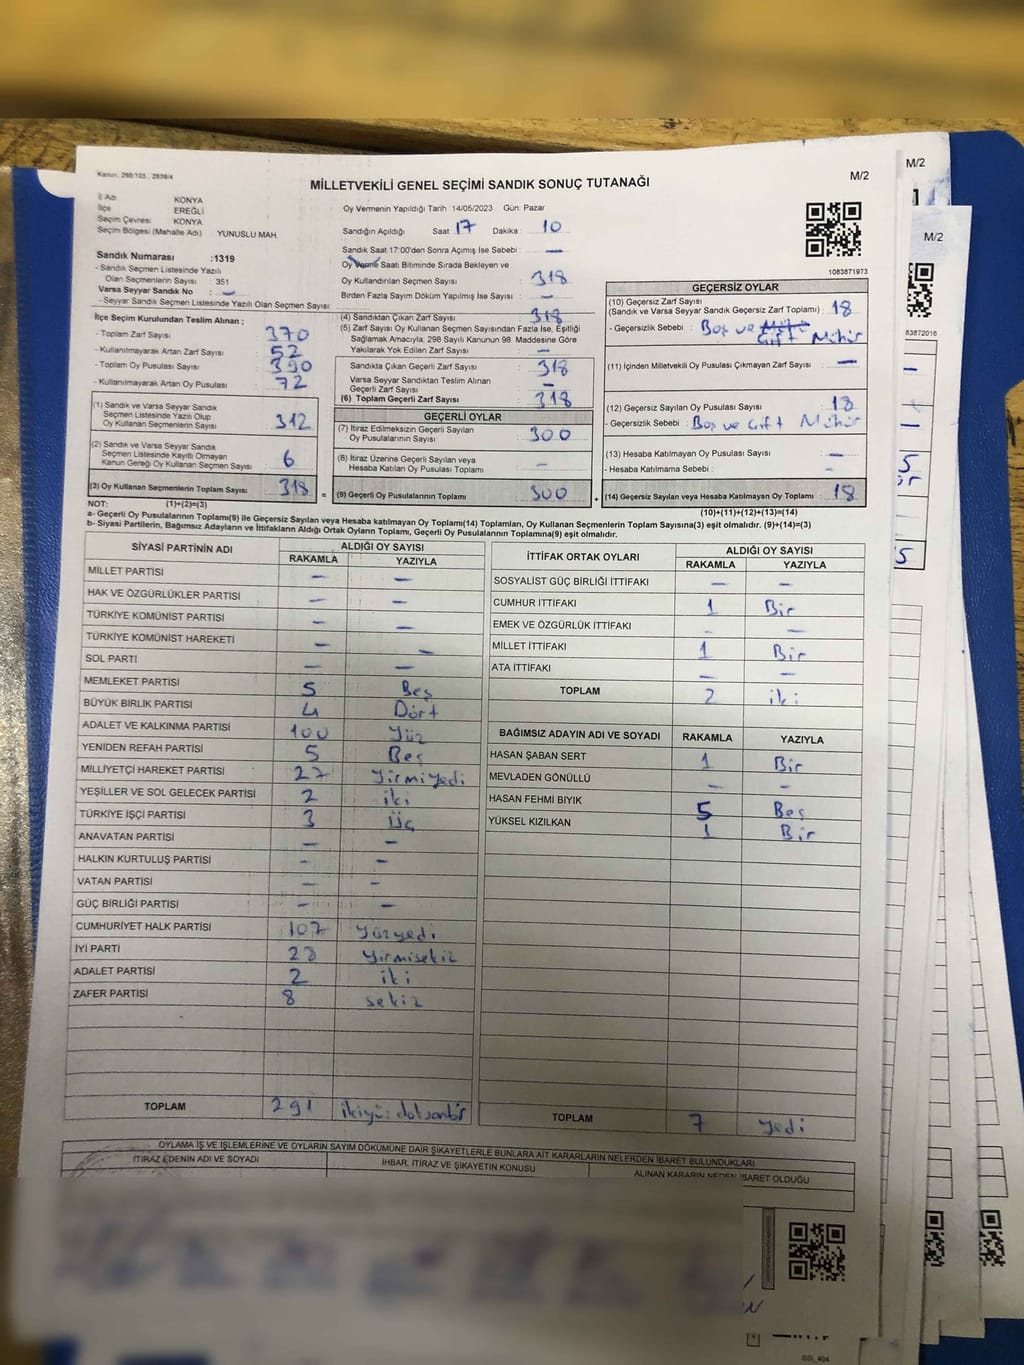 Kanun. 298/105 , 2839/4
M/2
MİLLETVEKİLİ GENEL SEÇİMİ SANDIK SONUÇ TUTANAĞI
M/2
M/2
İl Adı KONYA
İlçe EREĞLİ
Seçim Çevresi KONYA
Seçim Bölgesi (Mahalle Adı) YUNUSLU MAH.
Sandık Numarası :1319
- Sandık Seçmen Listesinde Yazılı
Olan Seçmenlerin Sayısı 351
Varsa Seyyar Sandık No : —
- Seyyar Sandık Seçmen Listesinde Yazılı Olan Seçmen Sayısı:
İlçe Seçim Kurulundan Teslim Alınan ;
- Toplam Zarf Sayısı : 370
- Kullanılmayarak Artan Zarf Sayısı : 52
- Toplam Oy Pusulası Sayısı : 390
- Kullanılmayarak Artan Oy Pusulası : 72
(1) Sandık ve Varsa Seyyar Sandık
Seçmen Listesinde Yazılı Olup
Oy Kullanan Seçmenlerin Sayısı : 312
(2) Sandık ve Varsa Seyyar Sandık
Seçmen Listesinde Kayıtlı Olmayan
Kanun Gereği Oy Kullanan Seçmen Sayısı : 6
(3) Oy Kullanan Seçmenlerin Toplam Sayısı : 318
Oy Vermenin Yapıldığı Tarih 14/05/2023 Gün: Pazar
Sandığın Açıldığı Saat 17 Dakika 10
Sandık Saat 17:00'den Sonra Açılmış İse Sebebi : —
Oy Verme Saati Bitiminde Sırada Bekleyen ve
Oy Kullandırılan Seçmen Sayısı : 318
Birden Fazla Sayım Döküm Yapılmış İse Sayısı : —
(4) Sandıktan Çıkan Zarf Sayısı : 318
(5) Zarf Sayısı Oy Kullanan Seçmen Sayısından Fazla İse, Eşitliği
Sağlamak Amacıyla, 298 Sayılı Kanunun 98. Maddesine Göre
Yakılarak Yok Edilen Zarf Sayısı : —
Sandıkta Çıkan Geçerli Zarf Sayısı : 318
Varsa Seyyar Sandıktan Teslim Alınan
Geçerli Zarf Sayısı : —
(6) Toplam Geçerli Zarf Sayısı : 318
GEÇERLİ OYLAR
(7) İtiraz Edilmeksizin Geçerli Sayılan
Oy Pusulalarının Sayısı : 300
(8) İtiraz Üzerine Geçerli Sayılan veya
Hesaba Katılan Oy Pusulası Toplamı : —
= (9) Geçerli Oy Pusulalarının Toplamı : 300
1083871973
GEÇERSİZ OYLAR
(10) Geçersiz Zarf Sayısı
(Sandık ve Varsa Seyyar Sandık Geçersiz Zarf Toplamı) : 18
- Geçersizlik Sebebi : Boş ve Çift Mühür
(11) İçinden Milletvekili Oy Pusulası Çıkmayan Zarf Sayısı : —
(12) Geçersiz Sayılan Oy Pusulası Sayısı : 18
- Geçersizlik Sebebi : Boş ve Çift Mühür
(13) Hesaba Katılmayan Oy Pusulası Sayısı : —
- Hesaba Katılmama Sebebi : —
+ (14) Geçersiz Sayılan veya Hesaba Katılmayan Oy Toplamı : 18
NOT: (1)+(2)=(3)
(10)+(11)+(12)+(13)=(14)
a- Geçerli Oy Pusulalarının Toplamı(9) ile Geçersiz Sayılan veya Hesaba katılmayan Oy Toplamı(14) Toplamları, Oy Kullanan Seçmenlerin Toplam Sayısına(3) eşit olmalıdır. (9)+(14)=(3)
b- Siyasi Partilerin, Bağımsız Adayların ve İttifakların Aldığı Ortak Oyların Toplamı, Geçerli Oy Pusulalarının Toplamına(9) eşit olmalıdır.
SİYASİ PARTİNİN ADI ALDIĞI OY SAYISI
RAKAMLA YAZIYLA
MİLLET PARTİSİ — —
HAK VE ÖZGÜRLÜKLER PARTİSİ — —
TÜRKİYE KOMÜNİST PARTİSİ — —
TÜRKİYE KOMÜNİST HAREKETİ — —
SOL PARTİ — —
MEMLEKET PARTİSİ 5 Beş
BÜYÜK BİRLİK PARTİSİ 4 Dört
ADALET VE KALKINMA PARTİSİ 100 Yüz
YENİDEN REFAH PARTİSİ 5 Beş
MİLLİYETÇİ HAREKET PARTİSİ 27 Yirmiyedi
YEŞİLLER VE SOL GELECEK PARTİSİ 2 iki
TÜRKİYE İŞÇİ PARTİSİ 3 Üç
ANAVATAN PARTİSİ — —
HALKIN KURTULUŞ PARTİSİ — —
VATAN PARTİSİ — —
GÜÇ BİRLİĞİ PARTİSİ — —
CUMHURİYET HALK PARTİSİ 107 Yüzyedi
İYİ PARTİ 28 Yirmisekiz
ADALET PARTİSİ 2 iki
ZAFER PARTİSİ 8 sekiz
TOPLAM 291 ikiyüz doksanbir
İTTİFAK ORTAK OYLARI ALDIĞI OY SAYISI
RAKAMLA YAZIYLA
SOSYALİST GÜÇ BİRLİĞİ İTTİFAKI — —
CUMHUR İTTİFAKI 1 Bir
EMEK VE ÖZGÜRLÜK İTTİFAKI — —
MİLLET İTTİFAKI 1 Bir
ATA İTTİFAKI — —
TOPLAM 2 iki
BAĞIMSIZ ADAYIN ADI VE SOYADI RAKAMLA YAZIYLA
HASAN ŞABAN SERT 1 Bir
MEVLADEN GÖNÜLLÜ — —
HASAN FEHMİ BIYIK 5 Beş
YÜKSEL KIZILKAN 1 Bir
TOPLAM 7 yedi
OYLAMA İŞ VE İŞLEMLERİNE VE OYLARIN SAYIM DÖKÜMÜNE DAİR ŞİKAYETLERLE BUNLARA AİT KARARLARIN NELERDEN İBARET BULUNDUKLARI
İTİRAZ EDENİN ADI VE SOYADI İHBAR, İTİRAZ VE ŞİKAYETİN KONUSU ALINAN KARARIN NEDEN İBARET OLDUĞU